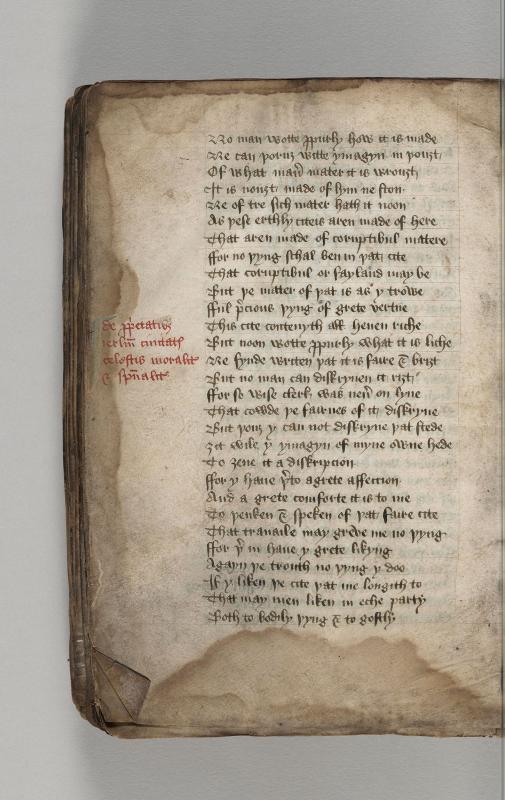 No man wotte ꝓpurly how it is made
Ne can þoruȝ witte ymagyn in þouȝt
Of what man̄ mater it is wrouȝt
It is nouȝt made of lym ne ston
Ne of tre sich mater hath it noon
As þese erthly citeis aren made of here
That aren made of coruptibul matere
ffor no þyng schal ben in þat cite
That coruptibul or fayland may be
But þe mater of þat is as y trowe
fful p̄cious þyng of grete v̄tue
This cite contenyth all heuen riche
But noon wotte ꝓpurly what it is liche
We fynde writen þat it is faire & briȝt
But no man can diskryuen it riȝt
ffor so wise clerk was neū on lyue
That cowde þe fairnes of it diskryue
But þouȝ y can not diskryue þat stede
Ȝit wile y ymagyn of myne owne hede
To ȝeue it a diskripcion
ffor y haue þ̄to a grete affection
And a grete comforte it is to me
To þenken & speken of þat faire cite
That trauaile may greve me no þyng
ffor þ̄ in haue y grete likyng
Agayn þe trouth no þyng y doo
If y liken þe cite þat me longith to
That may men liken in eche party
Both to bodily þyng & to gostly
de
ierlm̄ ciuitatis
celestis
& sp̄ualit̄